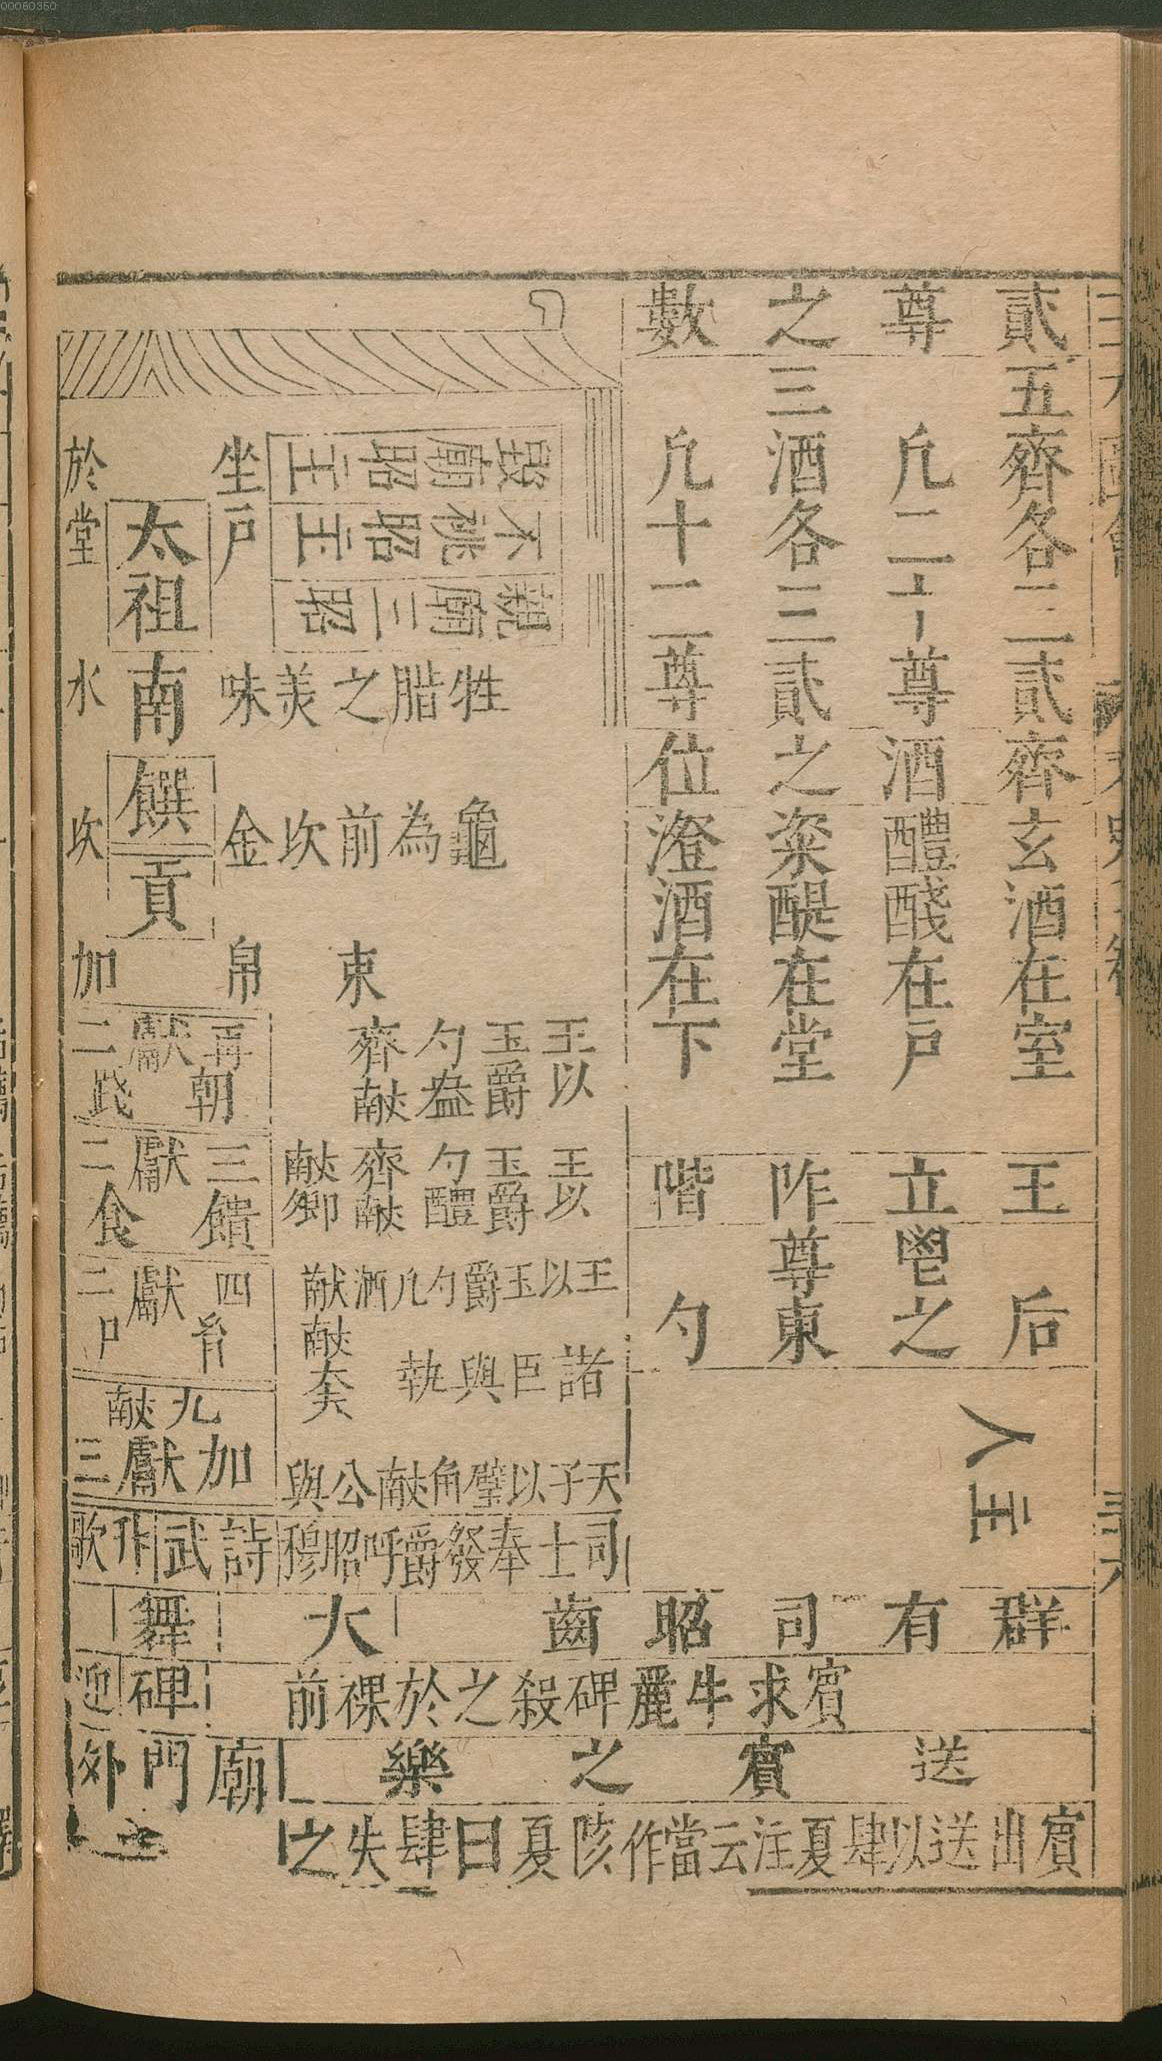 00060350
貳尊之數
五齊各二貳
凡二十尊
三酒各三貳
凡十二尊
齊酒之位
玄酒在室
醴醆在戶
粢醍在堂
澄酒在下
王立阼階
后
鬯之
尊東
勺
王人
毀廟昭主
不祧昭主
親廟三昭
坐戶
於堂
太祖
南
饌
貢
牲腊之美味
龜為前坎金
水
坎
束帛
加
王以玉爵勺盎齊献
王以玉爵勺醴齊献献卿
王以玉爵勺凡酒献献大夫
諸臣與執
天子以璧角献公與
再献朝二踐
三献饋二食
四献
二尸
九献
加献三
司士奉發爵呼昭穆
詩武升歌
群有司昭齒
大舞
賓求牛麗碑殺之於祼前
碑
迎
送賓之樂
廟門外之
賓出送以肆夏注云當作陔夏曰肆失之